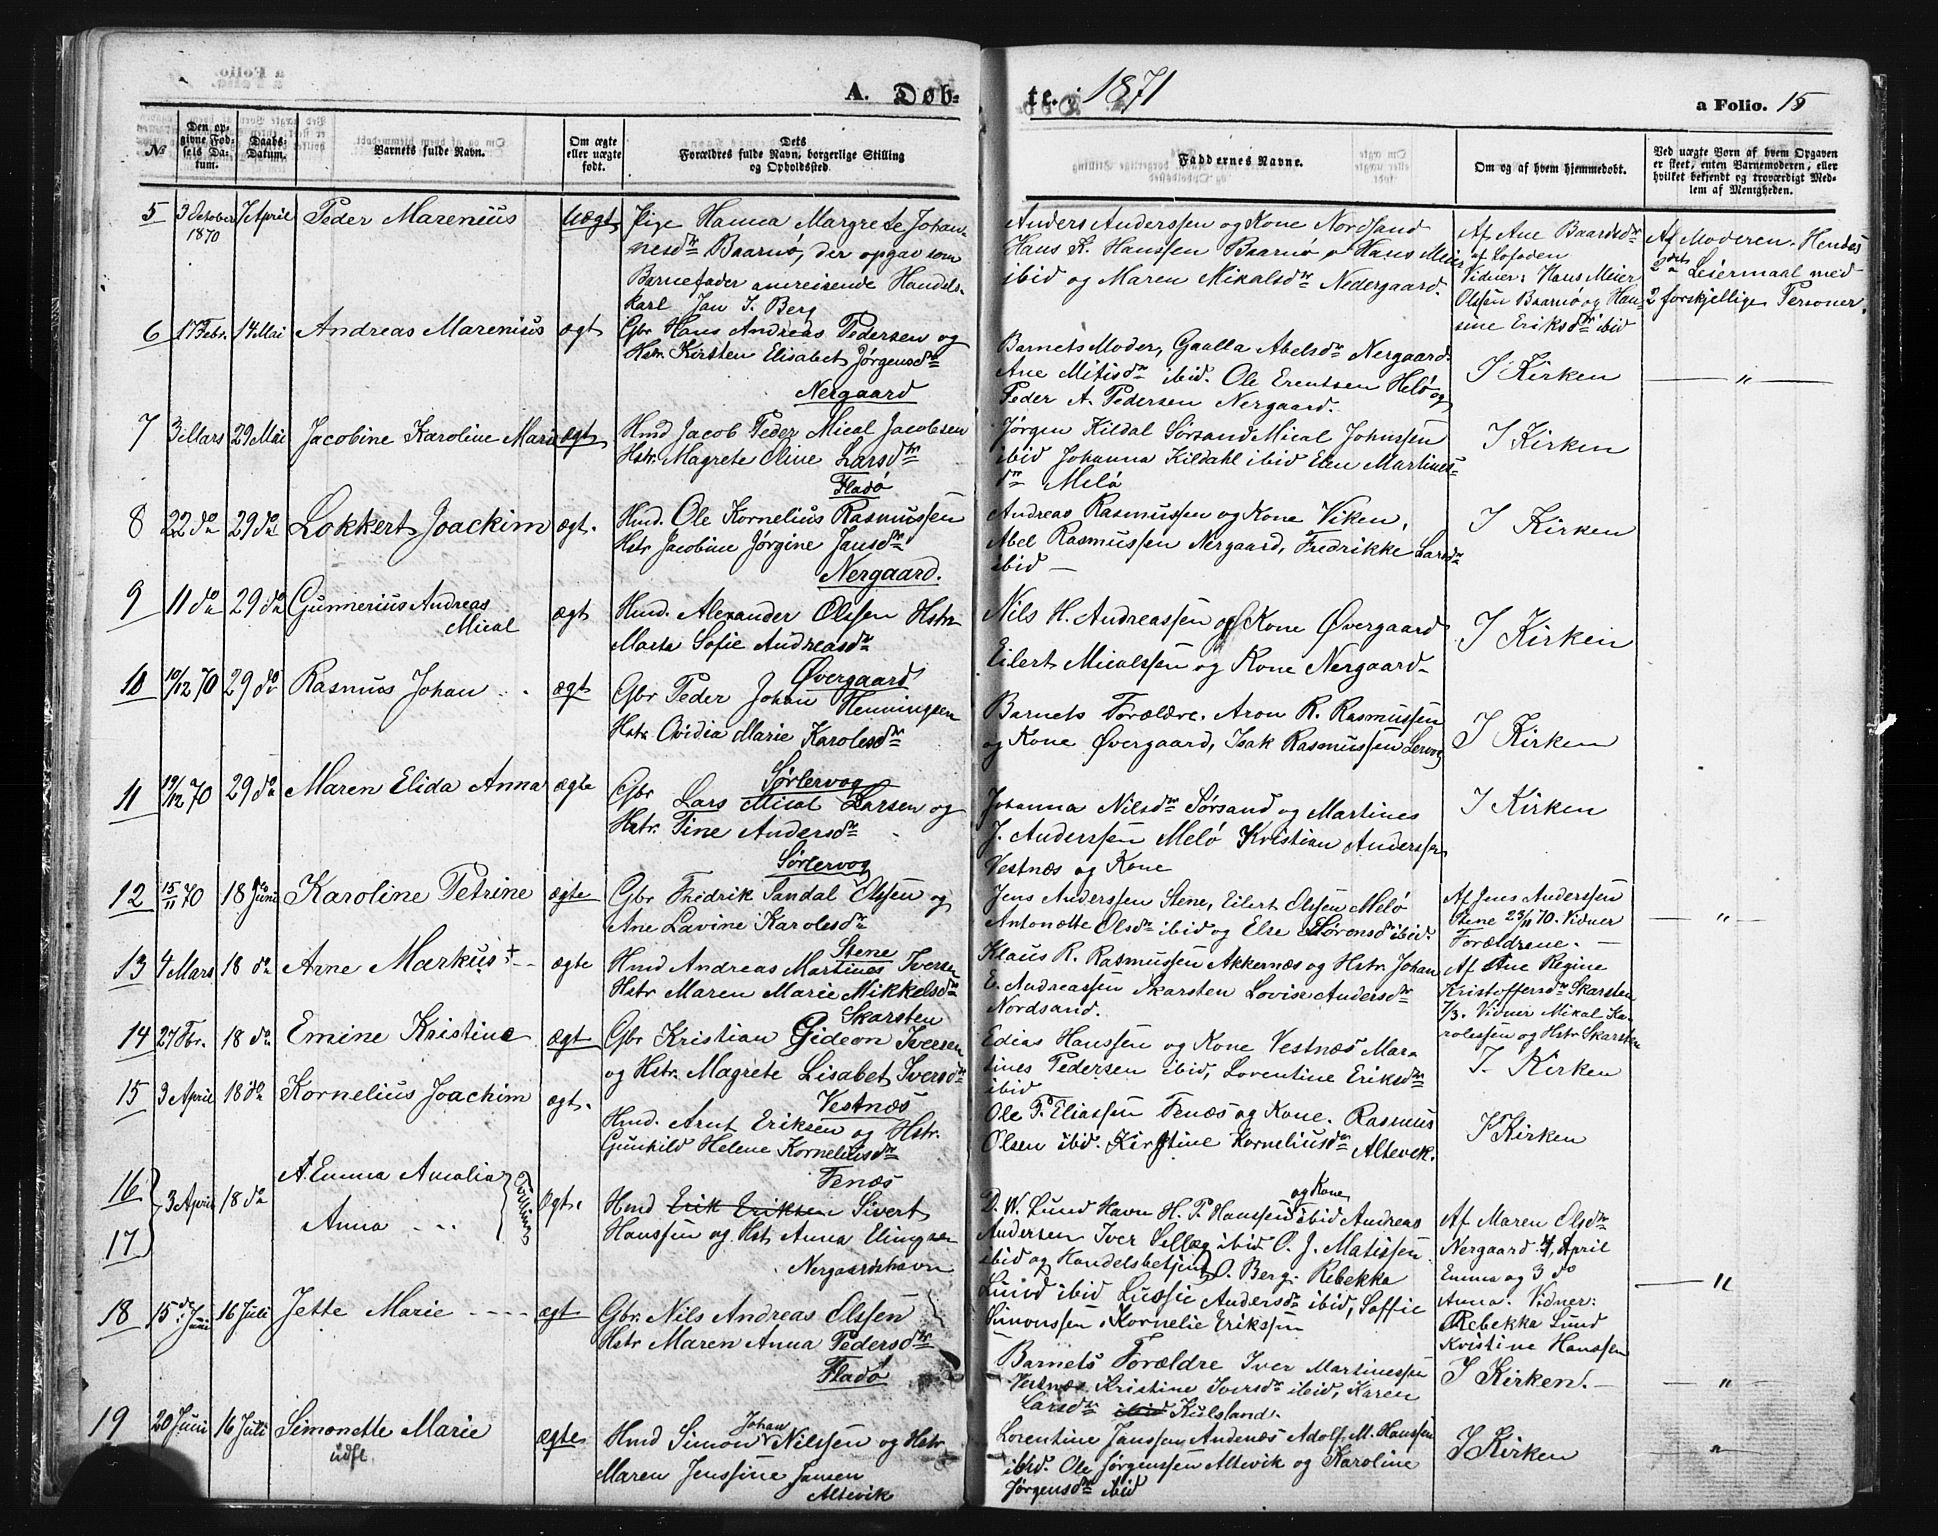 A. Døb-
te. i 1871
a Folio. 15
№
Den op-
givne Fød-
sels Da-
tum.
Daabs-
Datum.
Barnets fulde Navn.
Om ægte
eller uægte
født.
Dets
Forældres fulde Navn, borgerlige Stilling
og Opholdssted.
Faddernes Navne.
Om og af hvem hjemmedøbt.
Ved uægte Børn af hvem Opgaven
er skeet, enten Barnemoderen, eller
hvilket bekjendt og troværdigt Med-
lem af Menigheden.
5 3 October 1870 7 April Peder Marenius Uægt
Pige Hanna Margrete Johan-
nesdr Baarnø, der opgav som
Barnefader omreisende Handels-
karl Jan I. Berg
Anders Anderssen og Kone Nordsand
Hans A. Hanssen Baarnø o Hans Meier
ibid og Maren Mikalsdr Nedergaard.
Af Ane Baardsdr
af Lofoden
Vidner: Hans Meier
Olssen Baarnø og Han-
sine Eriksdr ibid
Af Moderen. Hendes
2det Leiermaal med
2 forskjellige Personer.
6 17 Febr. 14 Mai Andreas Marenius ægt
Gbr Hans Andreas Pedersen og
Hstr. Kirsten Elisabet Jørgensdr
Nergaard
Barnets Moder, Gaalla Abelsdr Nergaard
Ane Mitisdr ibid. Ole Erentsen Helø og
Peder A. Pedersen Nergaard.
I Kirken
— " —
7 3 Mars 29 Mai Jacobine Karoline Marie ægt
Hmd Jacob Peder Mical Jacobsen
Hstr. Magrete Oline Larsdtr
Fladø
Jørgen Kildal Sørsand Mical Johnssen
ibid Johanna Kildahl ibid Elen Martines-
dr Melø
I Kirken
8 22 do 29 do Lokkert Joackim ægt.
Hmd. Ole Kornelius Rasmussen
Hstr Jacobine Jørgine Jansdr
Nergaard.
Andreas Rasmussen og Kone Viken,
Abel Rasmussen Nergaard, Fredrikke Larsdr
ibid —
I Kirken
9 11 do 29 do Gunnerius Andreas
Mical
ægt
Hmd. Alexander Olssen Hstr
Marta Sofie Andreasdr
Øvergaard
Nils H. Andreassen og Kone Øvergaard
Eilert Micalssen og Kone Nergaard-
I Kirken
10 10/12 70 29 do Rasmus Johan ægt
Gbr Peder Johan Henningsen
Hstr Ovidia Marie Karolesdr
Sørlervog
Barnets Forældre. Aron R. Rasmussen
og Kone Øvergaard, Isak Rasmussen Lervog
I Kirken
11 19/12 70 29 do Maren Elida Anna ægte
Gbr Lars Mical Larsen og
Hstr. Tine Andersdr
Sørlervog
Johanna Nilsdr Sørsand og Martines
J. Anderssen Melø Kristian Anderssen
Vestnæs og Kone
I Kirken
12 15/11 70 18 Juni Karoline Petrine ægte
Gbr Fredrik Sandal Olssen og
Ane Lavine Karolesdr
Stene
Jens Anderssen Stene, Eilert Olssen Melø
Antonætte Olsdr ibid og Else Sørensd ibid.
Af Jens Anderssen
Stene 23/11 70. Vidner
Forældrene. —
— " —
13 4 Mars 18 do Arne Markus + ægte
Hmd Andreas Martines Iversen
Hstr Maren Marie Mikkelsdr
Skarsten
Klaus R. Rasmussen Akkernæs og Hstr. Johan
E. Andreassen Skarsten Lovise Andersdr
Nordsand.
Af Ane Regine
Kristoffersdr Skarsten
7/3. Vidner Mikal Ka-
rolessen og Hstr Skarsten
14 27 Fbr. 18 do Emine Kristine ægt
Gbr Kristian Gideon Iversen
og Hstr. Magrete Lisabet Iversdr
Vestnæs
Edias Hanssen og Kone Vestnæs Mar-
tines Pedersen ibid, Lorentine Eriksdr
ibid
I Kirken
15 3 April 18 do Kornelius Joachim ægt.
Hmd. Arnt Eriksen og Hstr.
Gunhild Helene Kornelius dr
Fenæs
Ole P. Eliassen Fenæs og Kone. Rasmus
Olsen ibid. Kirstine Korneliusdr Altevik.
I Kirken
16
17
3 April 18 do A. Emma Amalia
Anna
Tvillinger
Ægt.
Hmd Erik Eriksen Sivert
Hanssen og Hst Anna Elingsen
Nergaardshavn
D. W. Lund Havn H. P. Hanssen og Kone ibid Andreas
Andersen Iver Selleg ibid O. J. Matissen
ibid og Handelsbetjent O. Berg. Rebekka
Lund ibid Lussie Andersdr ibid, Soffie
Simonssen, Kornelie Erikssen
Af Maren Olsdr
Nergaard 4/ April
Emma og 3 do
Anna. Vidner:
Rebekka Lund
Kristine Hanssen
— " —
18 15de Juni 16 Juli Jette Marie ægt
Gbr. Nils Andreas Olssen
Hstr Maren Anna Pedersdr
Fladø
Barnets Forældre Iver Martinessen
Vestnæs Kristine Iversdr ibid, Karen
Larsdr ibid Kulsland.
I Kirken. —
— " —
19 20 Juni 16 Juli Simonette Marie
udfl.
ægte
Hmd Simon Johan Nilssen og Hstr
Maren Jenssine Jansen
Altevik
Lorentine Janssen Andenæs Adolf M. Hanssen
ibid. Ole Jørgenssen Altevik og Karoline
Jørgensdr ibid
I Kirken
"